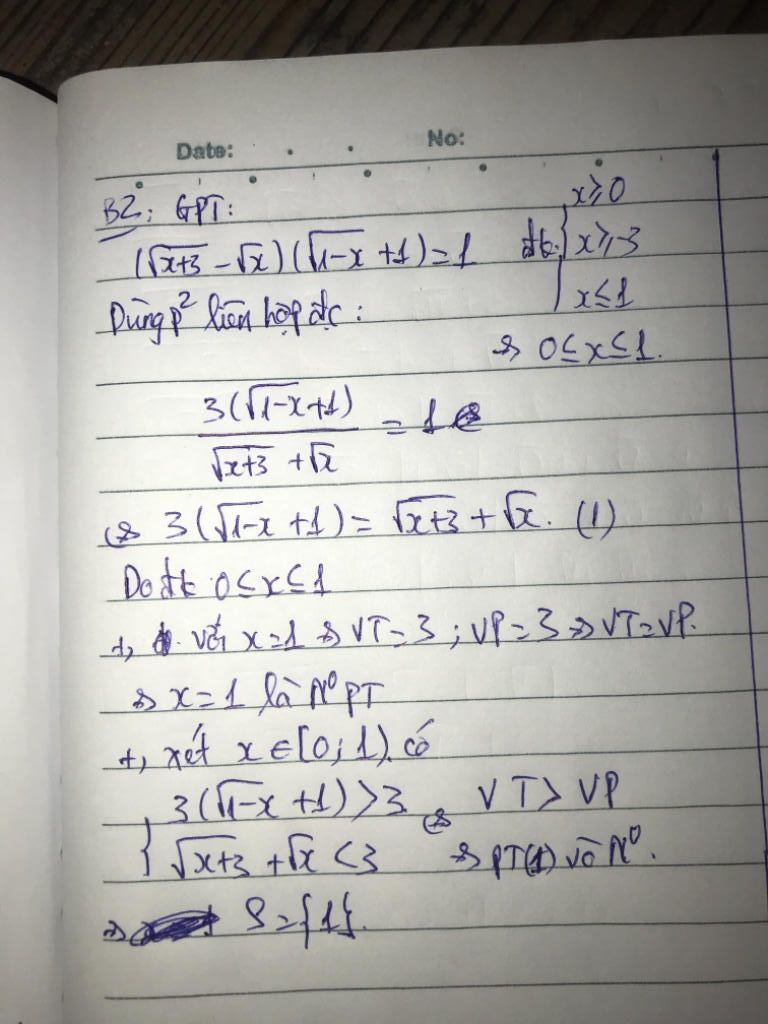 Date: No:
B2: GPT:
x ≥ 0
(√x+3 - √x)(√1-x + 1) = 1 đk: { x ≥ -3
Dùng p² liên hợp đc: x ≤ 1
⇒ 0 ≤ x ≤ 1.
3(√1-x + 1) / (√x+3 + √x) = 1
⇔ 3(√1-x + 1) = √x+3 + √x. (1)
Do đk 0 ≤ x ≤ 1
+, với x = 1 ⇒ VT = 3 ; VP = 3 ⇒ VT = VP.
⇒ x = 1 là N⁰ PT
+, xét x ∈ [0; 1). có
{ 3(√1-x + 1) > 3 ⇔ VT > VP
√x+3 + √x < 3 ⇒ PT(1) vô N⁰.
⇒ S = {1}.